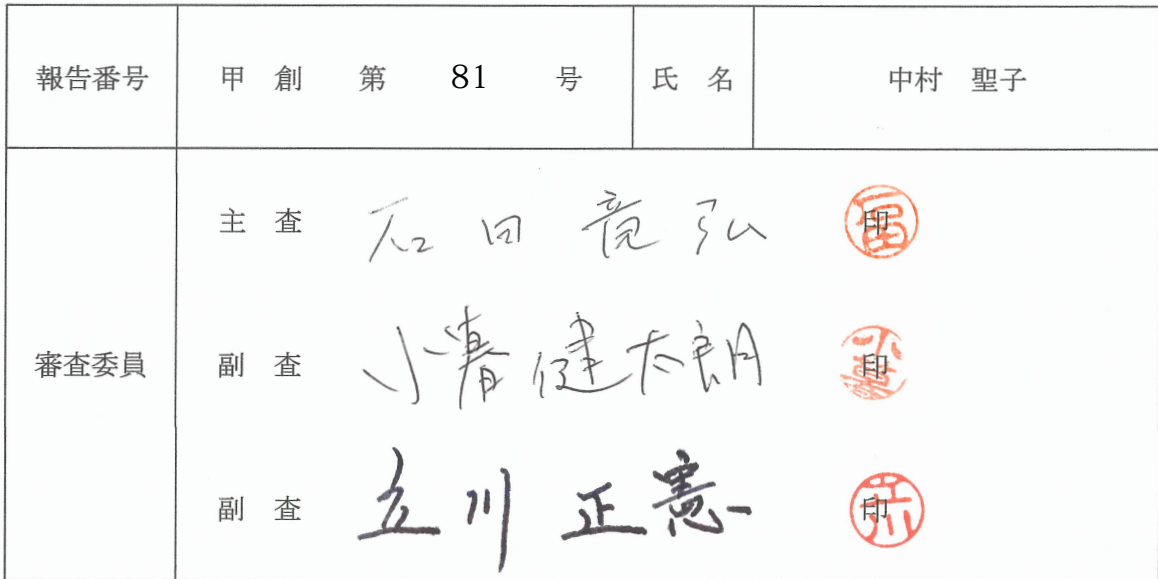 報告番号 甲 創 第 81 号 氏 名 中村 聖子
主 査 石田 竜弘 印
審査委員 副 査 小暮健太朗 印
副 査 立川 正憲 印